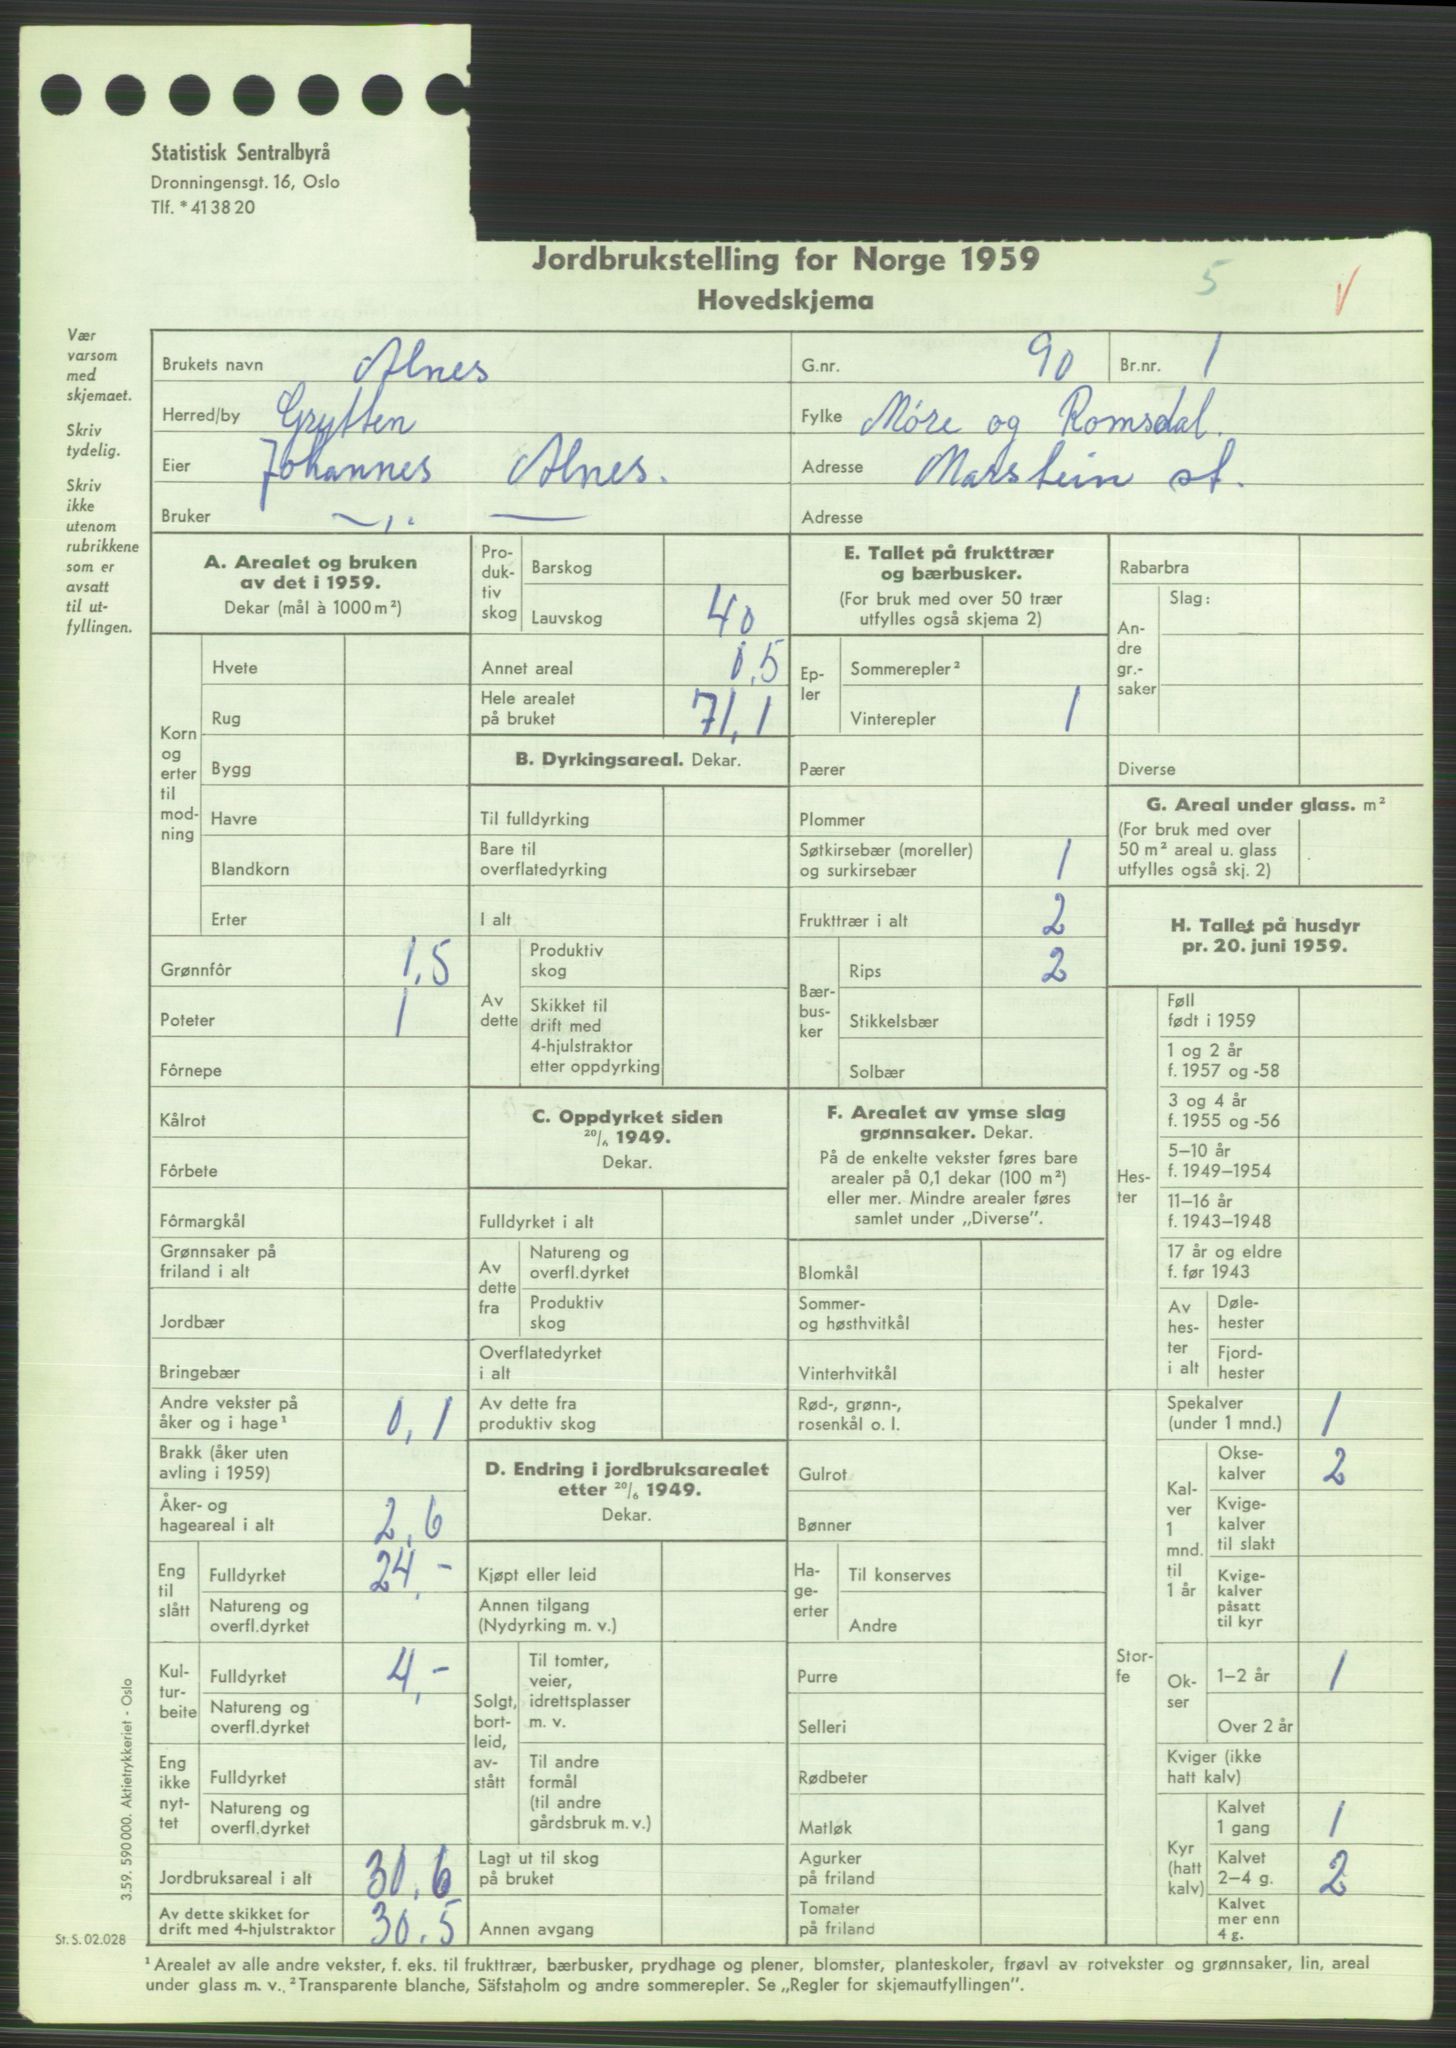 Statistisk Sentralbyrå
Dronningensgt. 16, Oslo
Tlf. *413820
Jordbrukstelling for Norge 1959
Hovedskjema
5
V
Vær
varsom
med
skjemaet.
Skriv
tydelig.
Skriv
ikke
utenom
rubrikkene
som er
avsatt
til ut-
fyllingen.
Brukets navn Alnes
G.nr. 90 Br.nr. 1
Herred/by Grytten
Fylke Møre og Romsdal.
Eier Johannes Alnes.
Adresse Marstein st.
Bruker —„—
Adresse
A. Arealet og bruken
av det i 1959.
Dekar (mål à 1000 m²)
Korn
og
erter
til
mod-
ning
Hvete
Rug
Bygg
Havre
Blandkorn
Erter
Grønnfôr 1,5
Poteter 1
Fôrnepe
Kålrot
Fôrbete
Fôrmargkål
Grønnsaker på
friland i alt
Jordbær
Bringebær
Andre vekster på
åker og i hage¹ 0,1
Brakk (åker uten
avling i 1959)
Åker- og
hageareal i alt 2,6
Eng
til
slått
Fulldyrket 24,-
Natureng og
overfl.dyrket
Kul-
tur-
beite
Fulldyrket 4,-
Natureng og
overfl.dyrket
Eng
ikke
nyt-
tet
Fulldyrket
Natureng og
overfl.dyrket
Jordbruksareal i alt 30,6
Av dette skikket for
drift med 4-hjulstraktor 30,5
Pro-
duk-
tiv
skog
Barskog
Lauvskog 40
Annet areal 0,5
Hele arealet
på bruket 71,1
B. Dyrkingsareal. Dekar.
Til fulldyrking
Bare til
overflatedyrking
I alt
Av
dette
Produktiv
skog
Skikket til
drift med
4-hjulstraktor
etter oppdyrking
C. Oppdyrket siden
20/6 1949.
Dekar.
Fulldyrket i alt
Av
dette
fra
Natureng og
overfl.dyrket
Produktiv
skog
Overflatedyrket
i alt
Av dette fra
produktiv skog
D. Endring i jordbruksarealet
etter 20/6 1949.
Dekar.
Kjøpt eller leid
Annen tilgang
(Nydyrking m. v.)
Solgt,
bort-
leid,
av-
stått
Til tomter,
veier,
idrettsplasser
m. v.
Til andre
formål
(til andre
gårdsbruk m. v.)
Lagt ut til skog
på bruket
Annen avgang
E. Tallet på frukttrær
og bærbusker.
(For bruk med over 50 trær
utfylles også skjema 2)
Ep-
ler
Sommerepler²
Vinterepler 1
Pærer
Plommer
Søtkirsebær (moreller)
og surkirsebær 1
Frukttrær i alt 2
Bær-
bus-
ker
Rips 2
Stikkelsbær
Solbær
F. Arealet av ymse slag
grønnsaker. Dekar.
På de enkelte vekster føres bare
arealer på 0,1 dekar (100 m²)
eller mer. Mindre arealer føres
samlet under „Diverse”.
Blomkål
Sommer-
og høsthvitkål
Vinterhvitkål
Rød-, grønn-,
rosenkål o. l.
Gulrot
Bønner
Ha-
ge-
erter
Til konserves
Andre
Purre
Selleri
Rødbeter
Matløk
Agurker
på friland
Tomater
på friland
Rabarbra
An-
dre
gr.-
saker
Slag:
Diverse
G. Areal under glass. m²
(For bruk med over
50 m² areal u. glass
utfylles også skj. 2)
H. Tallet på husdyr
pr. 20. juni 1959.
Hes-
ter
Føll
født i 1959
1 og 2 år
f. 1957 og -58
3 og 4 år
f. 1955 og -56
5–10 år
f. 1949–1954
11–16 år
f. 1943–1948
17 år og eldre
f. før 1943
Av
hes-
ter
i alt
Døle-
hester
Fjord-
hester
Stor-
fe
Spekalver
(under 1 mnd.) 1
Kal-
ver
1
mnd.
til
1 år
Okse-
kalver 2
Kvige-
kalver
til slakt
Kvige-
kalver
påsatt
til kyr
Ok-
ser
1–2 år 1
Over 2 år
Kviger (ikke
hatt kalv)
Kyr
(hatt
kalv)
Kalvet
1 gang 1
Kalvet
2–4 g. 2
Kalvet
mer enn
4 g.
3.59. 590 000. Aktietrykkeriet - Oslo
St. S. 02.028
¹ Arealet av alle andre vekster, f. eks. til frukttrær, bærbusker, prydhage og plener, blomster, planteskoler, frøavl av rotvekster og grønnsaker, lin, areal
under glass m. v. ² Transparente blanche, Säfstaholm og andre sommerepler. Se „Regler for skjemautfyllingen”.